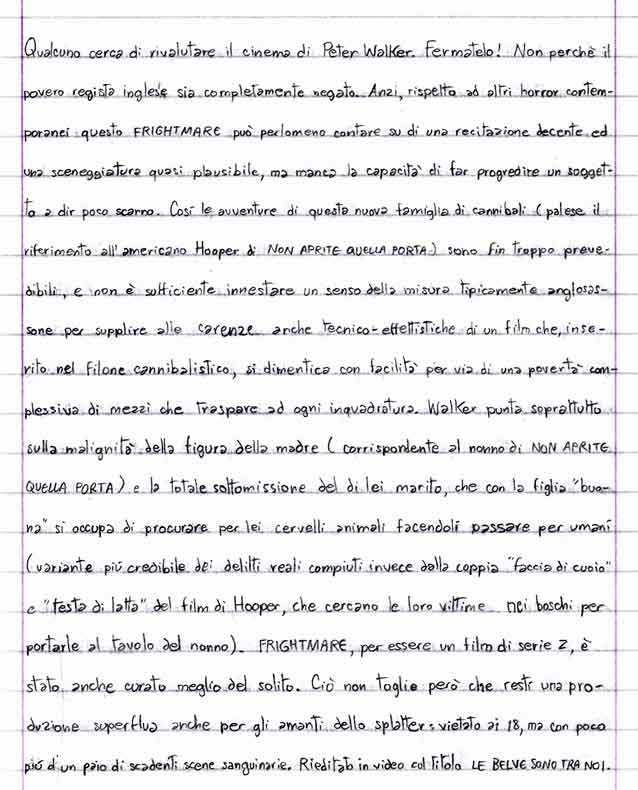 Qualcuno cerca di rivalutare il cinema di Peter Walker. Fermatelo! Non perchè il
povero regista inglese sia completamente negato. Anzi, rispetto ad altri horror contem-
poranei questo FRIGHTMARE può perlomeno contare su di una recitazione decente ed
una sceneggiatura quasi plausibile, ma manca la capacità di far progredire un sogget-
to a dir poco scarno. Così le avventure di questa nuova famiglia di cannibali (palese il
riferimento all'americano Hooper di NON APRITE QUELLA PORTA) sono fin troppo preve-
dibili, e non è sufficiente innestare un senso della misura tipicamente anglosas-
sone per supplire alle carenze anche tecnico-effettistiche di un film che, inse-
rito nel filone cannibalistico, si dimentica con facilità per via di una povertà com-
plessiva di mezzi che traspare ad ogni inquadratura. Walker punta soprattutto
sulla malignità della figura della madre (corrispondente al nonno di NON APRITE
QUELLA PORTA) e la totale sottomissione del di lei marito, che con la figlia "buo-
na" si occupa di procurare per lei cervelli animali facendoli passare per umani
(variante più credibile dei delitti reali compiuti invece dalla coppia "faccia di cuoio"
e "testa di latta" del film di Hooper, che cercano le loro vittime nei boschi per
portarle al tavolo del nonno). FRIGHTMARE, per essere un film di serie Z, è
stato anche curato meglio del solito. Ciò non toglie però che resti una pro-
duzione superflua anche per gli amanti dello splatter: vietato ai 18, ma con poco
più d'un paio di scadenti scene sanguinarie. Rieditato in video col titolo LE BELVE SONO TRA NOI.